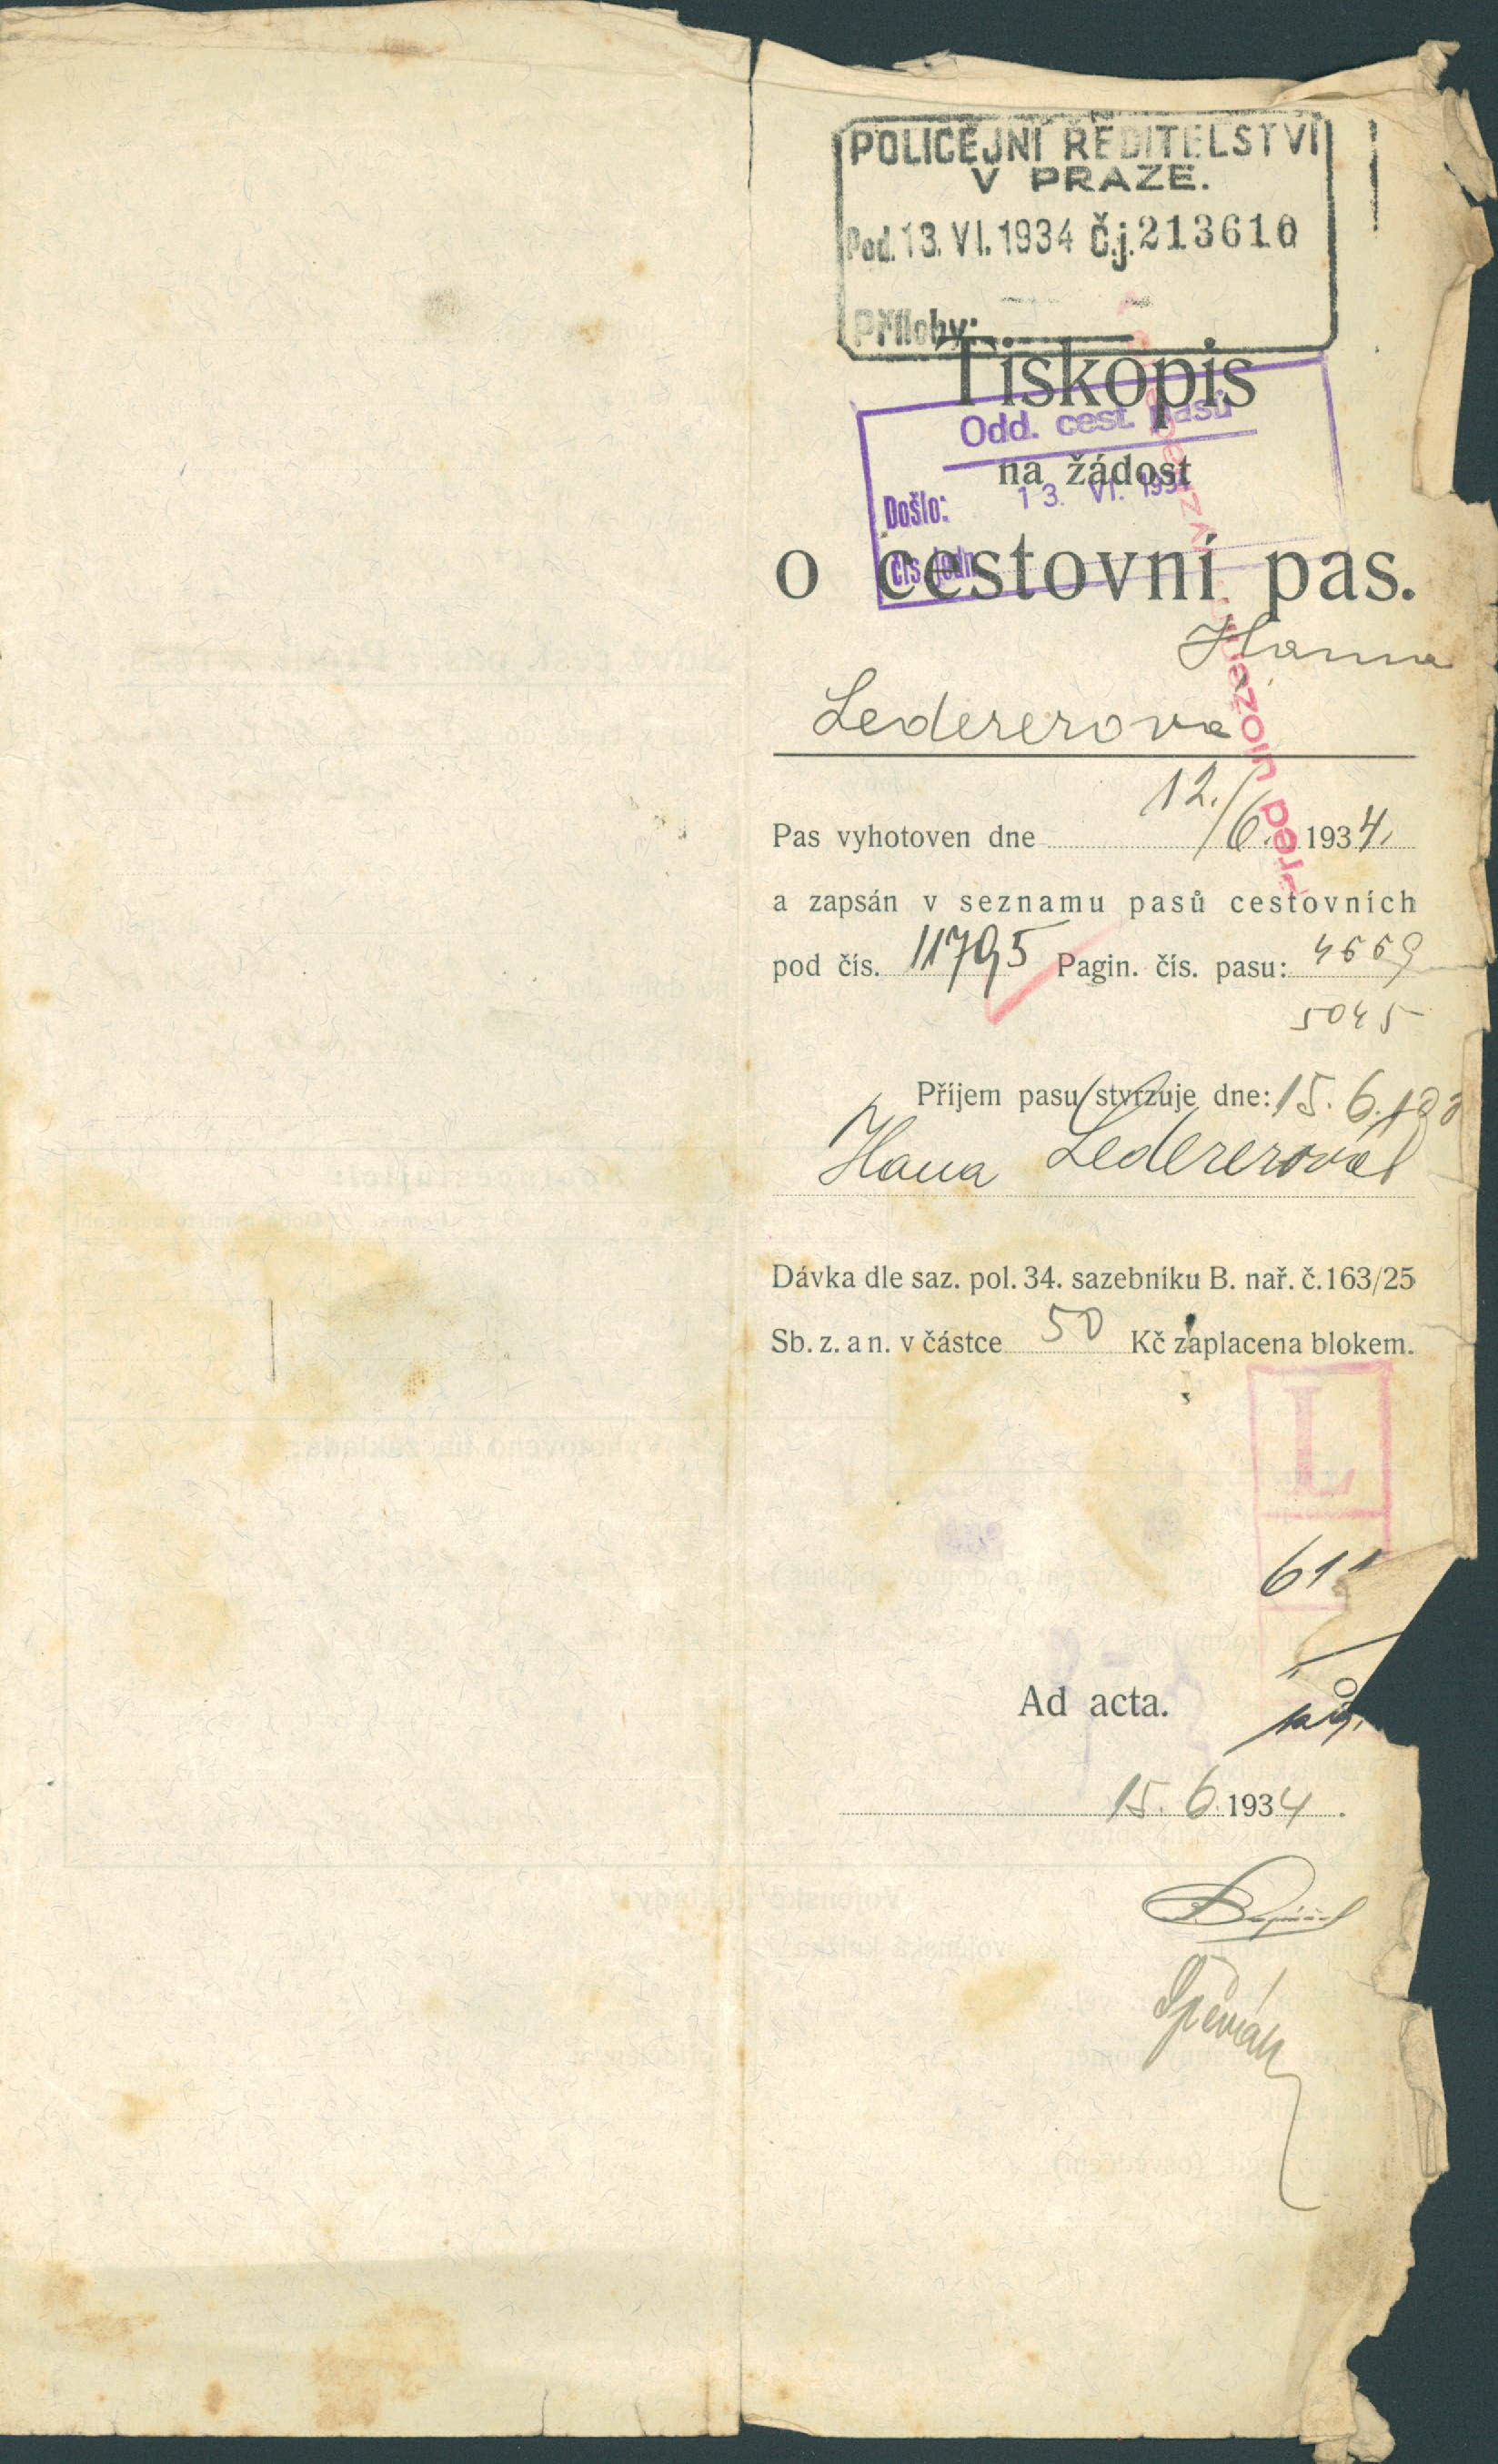 POLICEJNÍ ŘEDITELSTVÍ
V PRAZE.
Pod. 13. VI. 1934 Č.j. 213610
Přílohy:
Tiskopis
Odd. cest. pasů
na žádost
Došlo: 13. VI. 193
čís. jedn.
o cestovní pas.
Hanna
Ledererova
Pas vyhotoven dne 12./6. 1934.
a zapsán v seznamu pasů cestovních
pod čís. 11795 Pagin. čís. pasu: 4669
5045
Příjem pasu stvrzuje dne: 15. 6. 193
Hana Ledererová
Dávka dle saz. pol. 34. sazebníku B. nař. č. 163/25
Sb. z. a n. v částce 50 Kč zaplacena blokem.
L
611
Ad acta.
15. 6. 1934.